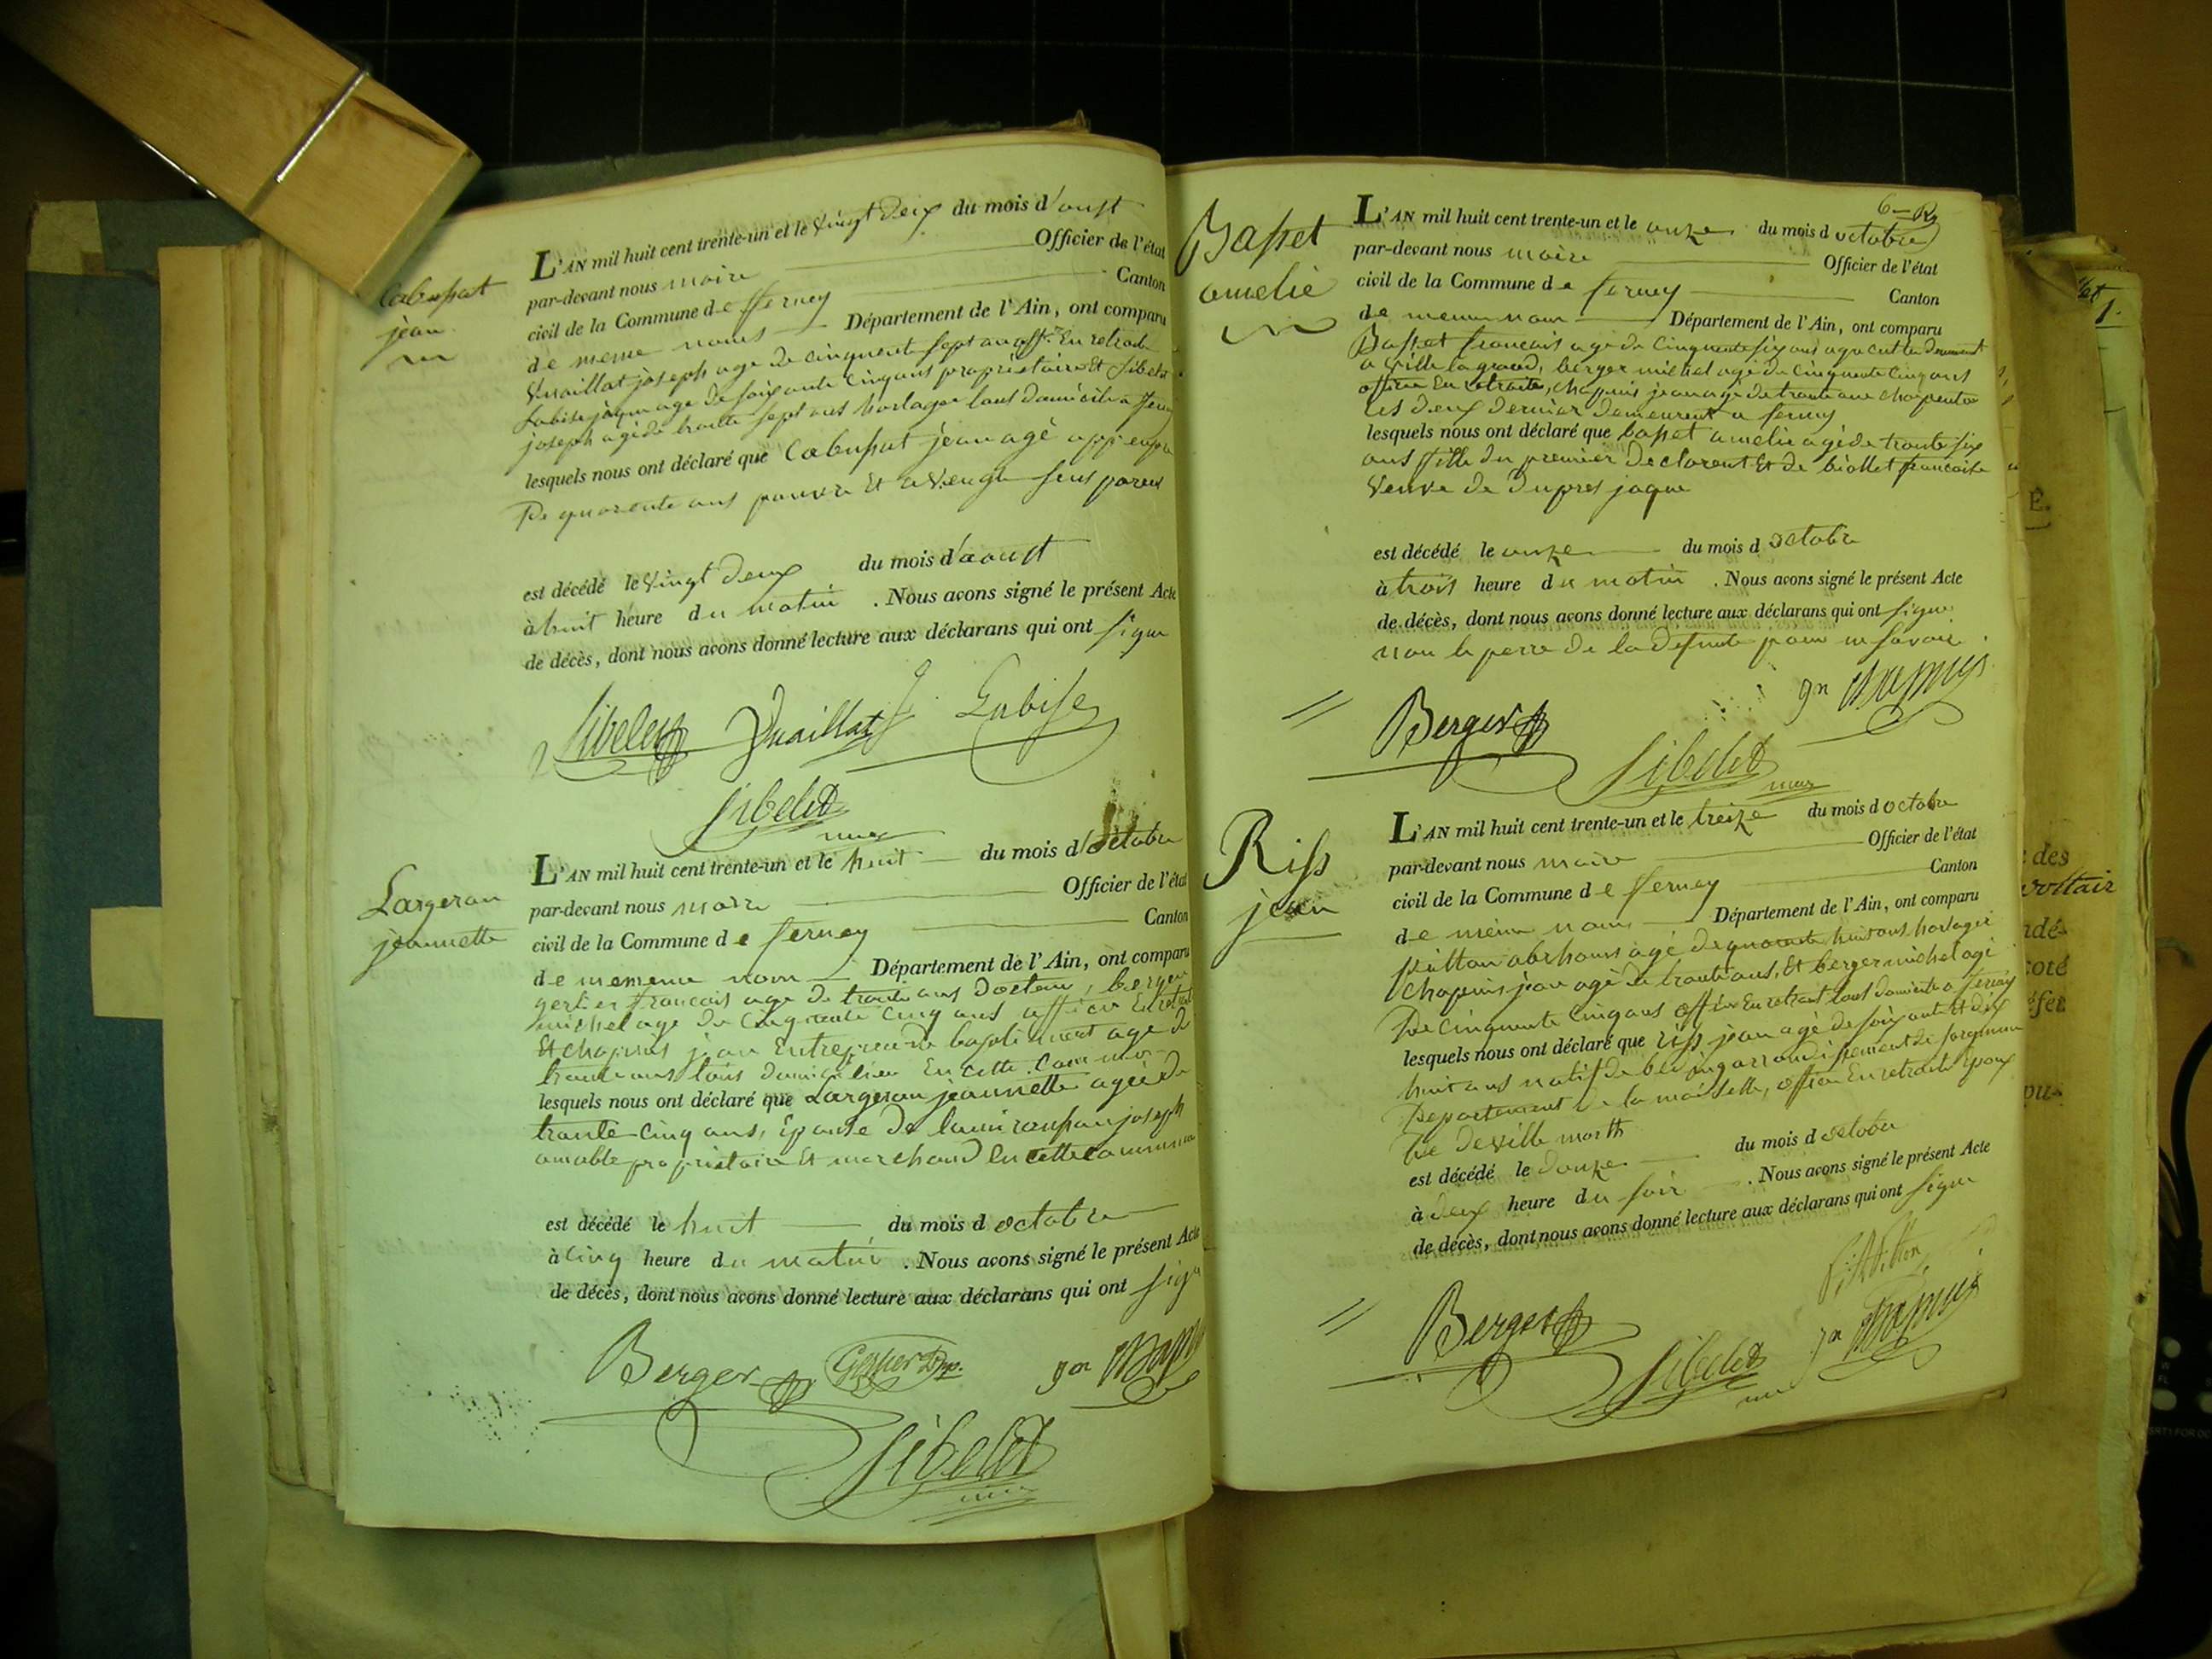 Cabussat
jean
L'AN mil huit cent trente-un et le vingt deux du mois d'aoust
par-devant nous maire Officier de l'état
civil de la Commune de ferney Canton
de meme noms Département de l'Ain, ont comparu
Vuaillat joseph age de cinquente sept ans offr. En retraite
Lubise jaque age de soixante cinq ans proprietaire Et Sibelet
joseph agé de trante sept ans horlager tous domicilié a ferney
lesquels nous ont déclaré que Cabussat jean agé
De quarente ans pauvre Et aveugle sens parens
est décédé le vingt deux du mois d'aoust
à huit heure du matin . Nous avons signé le présent Acte
de décès, dont nous avons donné lecture aux déclarans qui ont signe
Sibelet Vuaillat J. Lubise
Sibelet
maire
Largeron
jeannette
L'AN mil huit cent trente-un et le huit du mois d'octobre
par-devant nous maire Officier de l'état
civil de la Commune de ferney Canton
de mememe nom Département de l'Ain, ont comparu
gerlier francois age de trante ans docteur, berger
michel age de cinquante cinq ans officie En retraite
Et chapuis jean Entrepreneur de batiment age de
trante ans tous domicilies En cette
lesquels nous ont déclaré que Largeron jeannette agée de
trante cinq ans, Epouse de joseph
amable propriétaire Et marchand En cette commune
est décédé le huit du mois d octobre
à cinq heure du matin . Nous avons signé le présent Acte
de décès, dont nous avons donné lecture aux déclarans qui ont sign
Berger
Sibelet
maire
6
Basset
amelie
L'AN mil huit cent trente-un et le onze du mois d octobre
par-devant nous maire Officier de l'état
civil de la Commune de ferney Canton
de meme nom Département de l'Ain, ont comparu
Basset francois agé de cinquente six ans demeurent
a ville la grand, berger michel agé de cinquente cinq ans
officie En retraite, chapuis jean agé de trante ans charpentie
les deux dernier demeurent a ferney
lesquels nous ont déclaré que basset amelie agé de trante six
ans fille du premier declarent Et de biollet francoise
veuve de dupres jaque
est décédé le onze du mois d octobre
à trois heure du matin . Nous avons signé le présent Acte
de décès, dont nous avons donné lecture aux déclarans qui ont signe
non le perre de la defunte pour ne savoir
Berger
Sibelet
maire
Riss
jean
L'AN mil huit cent trente-un et le treize du mois d octobre
par-devant nous maire Officier de l'état
civil de la Commune de ferney Canton
de meme nom Département de l'Ain, ont comparu
abrham agé de quarante huit ans horloger
Chapuis jean agé de trante ans, Et berger michel agé
De cinquente cinq ans officie En retraite tout domicilie a ferney
lesquels nous ont déclaré que riss jean agé de soixante Et dix
huit ans natif de arrondissement de
Departement de la , officie En retraite Epoux
de deville
est décédé le douze du mois d octobre
à deux heure du soir . Nous avons signé le présent Acte
de décès, dont nous avons donné lecture aux déclarans qui ont signe
Berger
Sibelet